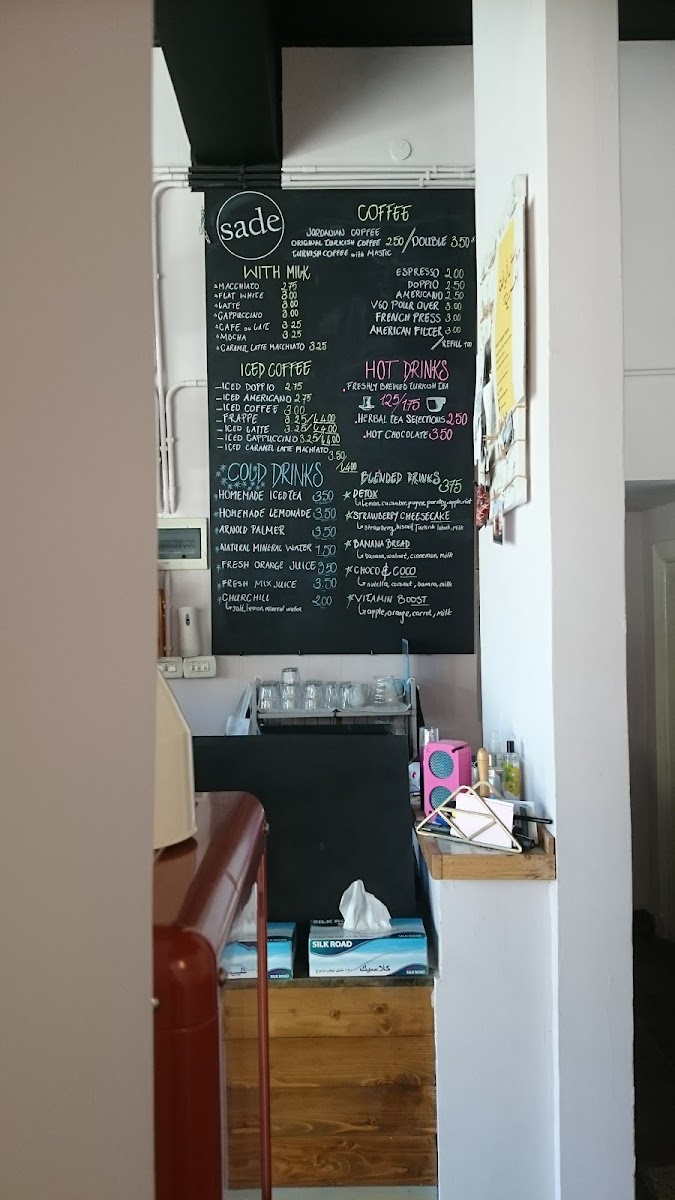 sade
COFFEE
JORDANIAN COFFEE
ORIGINAL TURKISH COFFEE 2.50 / DOUBLE 3.50
TURKISH COFFEE with MASTIC
WITH MILK
MACCHIATO 2.75
FLAT WHITE 3.00
LATTE 3.00
CAPPUCCINO 3.00
CAFE au LAIT 3.25
MOCHA 3.25
CARAMEL LATTE MACCHIATO 3.25
ESPRESSO 2.00
DOPPIO 2.50
AMERICANO 2.50
V60 POUR OVER 3.00
FRENCH PRESS 3.00
AMERICAN FILTER 3.00
/ REFILL 1.00
ICED COFFEE
ICED DOPPIO 2.75
ICED AMERICANO 2.75
ICED COFFEE 3.00
FRAPPE 3.25/L4.00
ICED LATTE 3.25/L4.00
ICED CAPPUCCINO 3.25/L4.00
ICED CARAMEL LATTE MACHIATO 3.50
/L4.00
HOT DRINKS
FRESHLY BREWED TURKISH TEA
1.25/1.75
HERBAL TEA SELECTIONS 2.50
HOT CHOCOLATE 3.50
COLD DRINKS
HOMEMADE ICED TEA 3.50
HOMEMADE LEMONADE 3.50
ARNOLD PALMER 3.50
NATURAL MINERAL WATER 1.50
FRESH ORANGE JUICE 3.50
FRESH MIX JUICE 3.50
CHURCHILL 2.00
salt, lemon, mineral water
BLENDED DRINKS 3.75
DETOX
lemon, cucumber, parsley, apple, mint
STRAWBERRY CHEESECAKE
strawberry, biscuit, Turkish labneh, milk
BANANA BREAD
banana, walnut, cinnamon, milk
CHOCO & COCO
nutella, coconut, banana, milk
VITAMIN BOOST
apple, orange, carrot, milk
SILK ROAD
SILK ROAD
كلاسيك
SILK ROAD
SILK ROAD